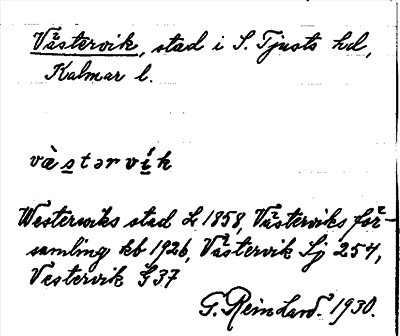 Västervik, stad i S. Tjusts hd,
Kalmar l.
västərvi̇́k
Westerwiks stad L 1858, Västerviks för-
samling kb 1926, Västervik Sj 254,
Vestervik G 37
G. Reinland. 1930.